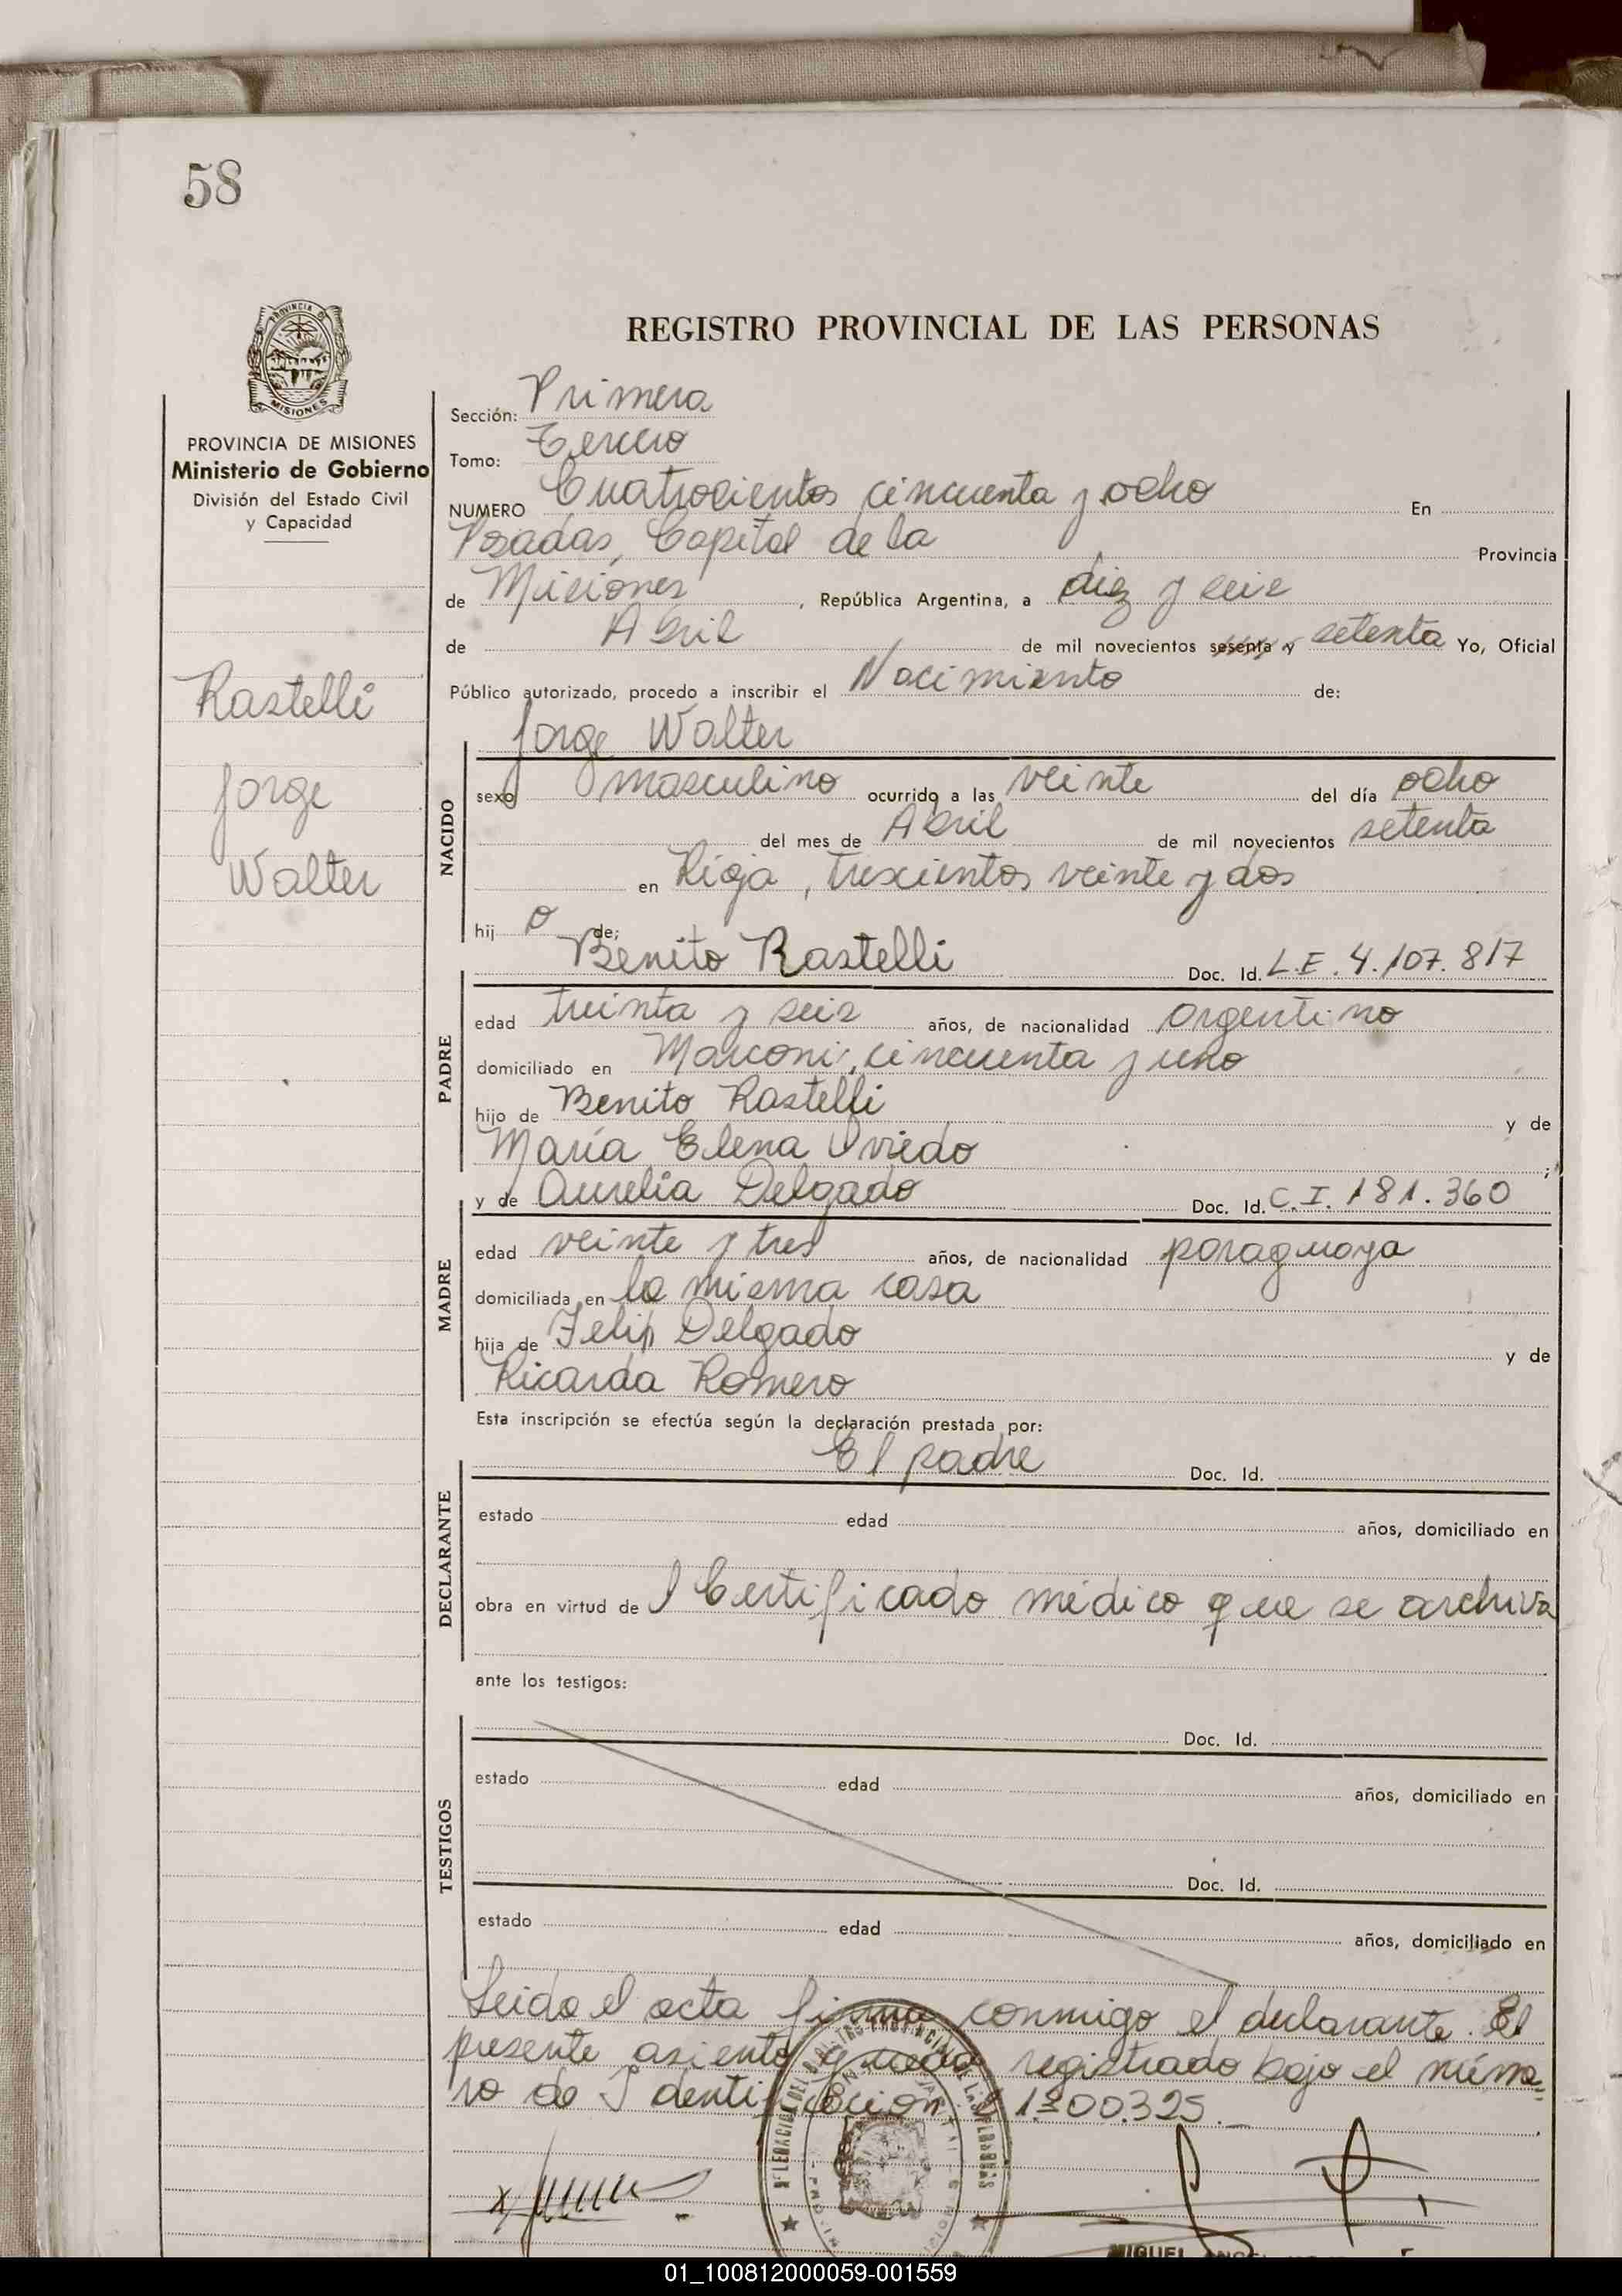 58
REGISTRO PROVINCIAL DE LAS PERSONAS
PROVINCIA DE MISIONES
Ministerio de Gobierno
División del Estado Civil
y Capacidad
Rastelli
Jorge
Walter
Sección: Primera
Tomo: Tercero
NUMERO Cuatrocientos cincuenta y ocho En
Posadas, Capital de la Provincia
de Misiones, República Argentina, a diez y seis
de Abril de mil novecientos sesenta y setenta Yo, Oficial
Público autorizado, procedo a inscribir el Nacimiento de:
Jorge Walter
NACIDO
sexo masculino ocurrido a las veinte del día ocho
del mes de Abril de mil novecientos setenta
en Rioja, trescientos veinte y dos
hij o de:
Benito Rastelli Doc. Id. L.E. 4.107.817
PADRE
edad treinta y seis años, de nacionalidad argentino
domiciliado en Marconi, cincuenta y uno
hijo de Benito Rastelli y de
María Elena Oviedo ;
y de Aurelia Delgado Doc. Id. C.I. 181.360
MADRE
edad veinte y tres años, de nacionalidad paraguaya
domiciliada en la misma casa
hija de Felip Delgado y de
Ricarda Romero
Esta inscripción se efectúa según la declaración prestada por:
El padre Doc. Id.
DECLARANTE
estado edad años, domiciliado en
obra en virtud de l Certificado médico que se archiva
ante los testigos:
Doc. Id.
TESTIGOS
estado edad años, domiciliado en
Doc. Id.
estado edad años, domiciliado en
Leido el acta firma conmigo el declarante. El
presente asiento queda registrado bajo el núme-
ro de Identificación
MIGUEL
01_100812000059-001559